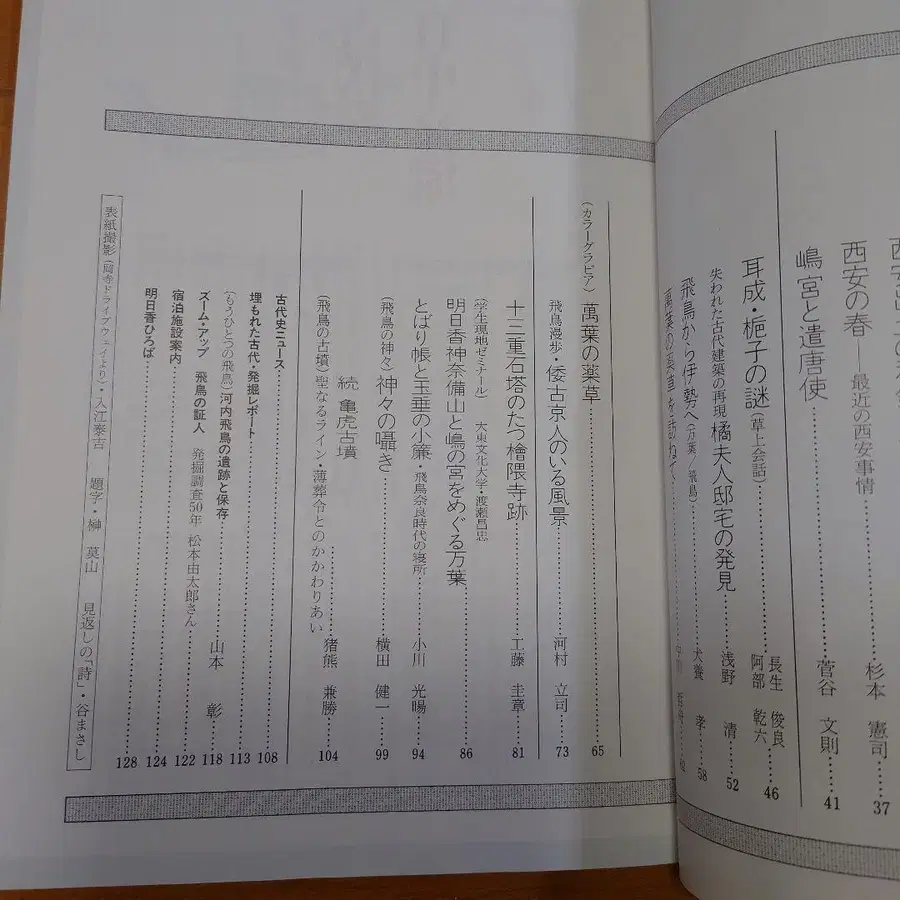 西安の春 最近の西安事情……杉本 憲司……37
嶋宮と遣唐使……菅谷 文則……41
耳成・梔子の謎(草上会話)……長生 俊良 阿部 乾六……46
失われた古代建築の再現 橘夫人邸宅の発見……浅野 清……52
飛鳥から伊勢へ(万葉・飛鳥)……犬養 孝……58
萬葉の薬草を訪ねて
(カラーグラビア) 萬葉の薬草……65
飛鳥漫歩・倭古京人のいる風景……河村 立司……73
十三重石塔のたつ檜隈寺跡……工藤 圭章……81
(学生現地ゼミナール) 大東文化大学・渡瀬昌忠
明日香神奈備山と嶋の宮をめぐる万葉……86
とばり帳と玉垂の小簾・飛鳥奈良時代の寝所……小川 光暘……94
(飛鳥の神々) 神々の囁き……横田 健一……99
続 亀虎古墳
(飛鳥の古墳) 聖なるライン・薄葬令とのかかわりあい……猪熊 兼勝……104
古代史ニュース……108
埋もれた古代・発掘レポート……113
(もうひとつの飛鳥) 河内飛鳥の遺跡と保存……山本 彰……118
ズーム・アップ 飛鳥の証人 発掘調査50年 松本由太郎さん……122
宿泊施設案内……124
明日香ひろば……128
表紙撮影(岡寺ドライブウェイより)・入江泰吉 題字・榊 莫山 見返しの「詩」・谷まさし